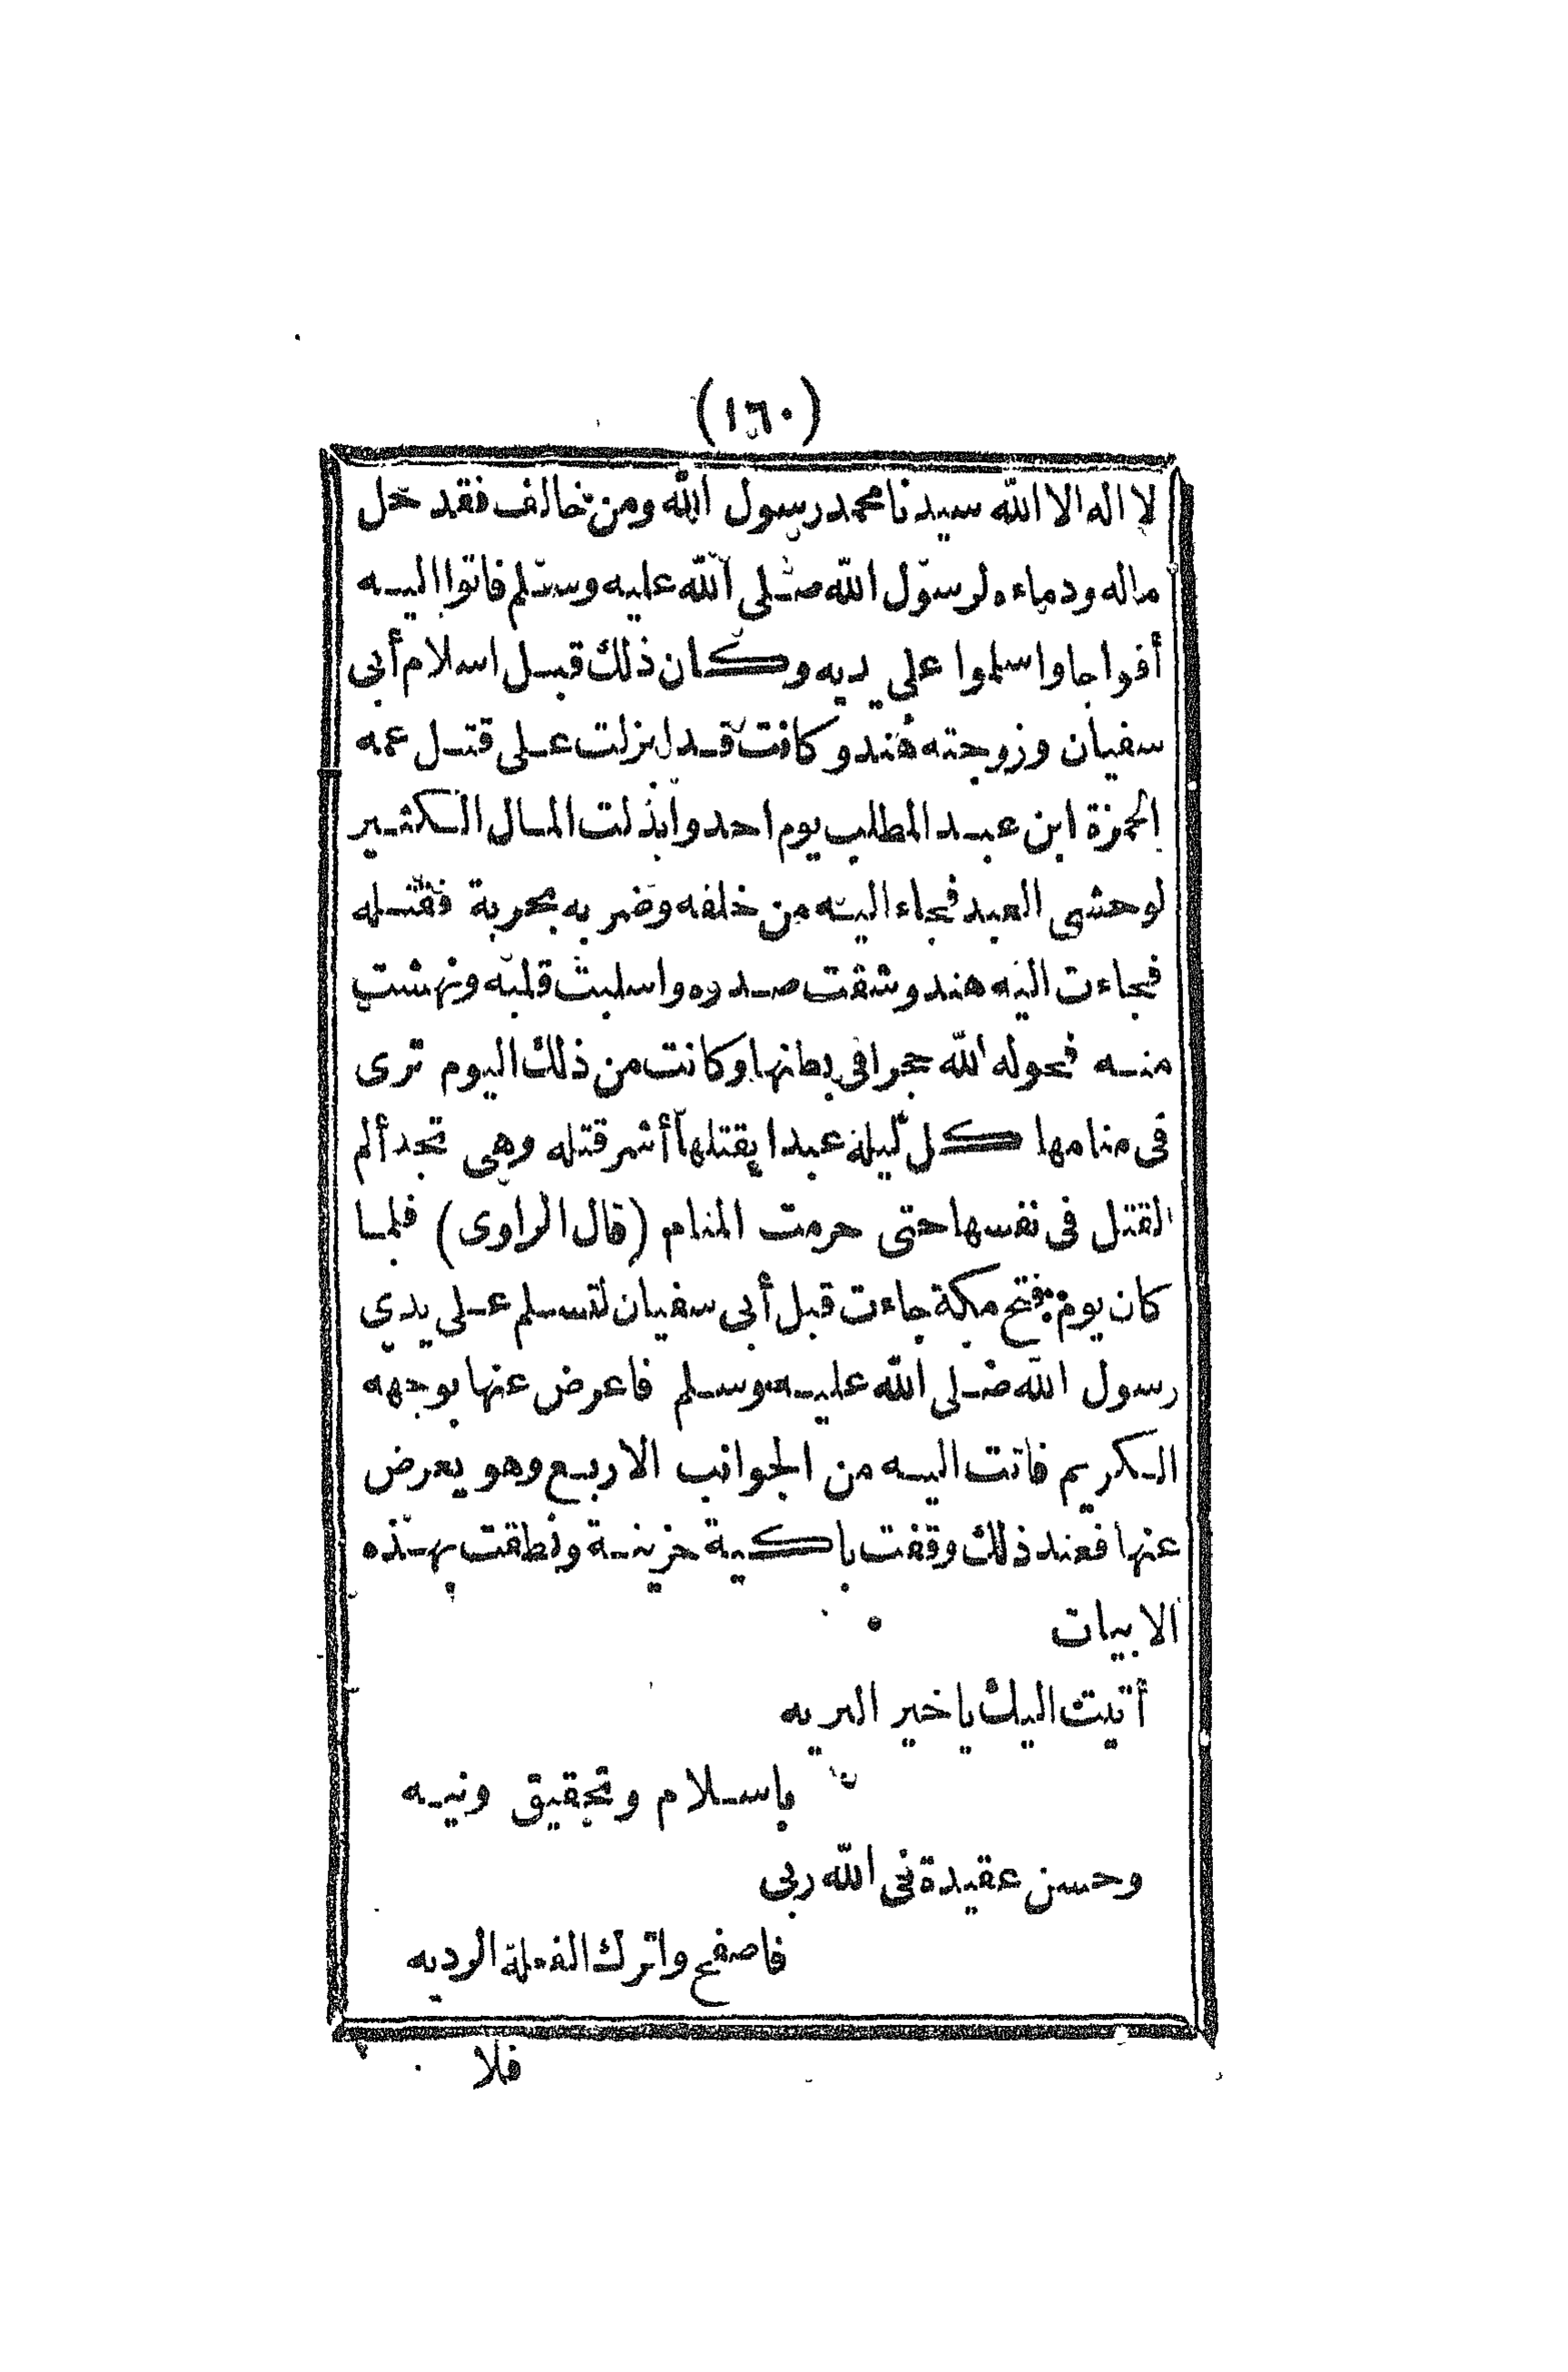 (١٦٠)
لا اله الا الله سيدنا محمد رسول الله ومن خالف فقد حل
ماله ودماءه لرسول الله صلى الله عليه وسلم فاتوا اليه
أفواجا واسلموا على يديه وكان ذلك قبل اسلام أبى
سفيان وزوجته هند وكانت قد انزلت على قتل عمه
الحمزة ابن عبد المطلب يوم احد وابذلت المال الكثير
لوحشى العبد فجاء اليه من خلفه وضربه بحربة فقتله
فجاءت اليه هند وشقت صدره واسلبت قلبه ونهشت
منه فحوله الله حجرا فى بطنها وكانت من ذلك اليوم ترى
فى منامها كل ليلة عبدا يقتلها أشر قتله وهى تجد ألم
القتل فى نفسها حتى حرمت المنام (قال الراوى) فلما
كان يوم فتح مكة جاءت قبل أبى سفيان لتسلم على يدي
رسول الله صلى الله عليه وسلم فاعرض عنها بوجهه
الكريم فاتت اليه من الجوانب الاربع وهو يعرض
عنها فعند ذلك وقفت باكية حزينة ونطقت بهذه
الابيات
أتيت اليك يا خير البريه
باسلام وتحقيق ونيه
وحسن عقيدة فى الله ربى
فاصفح واترك الفعلة الرديه
فلا